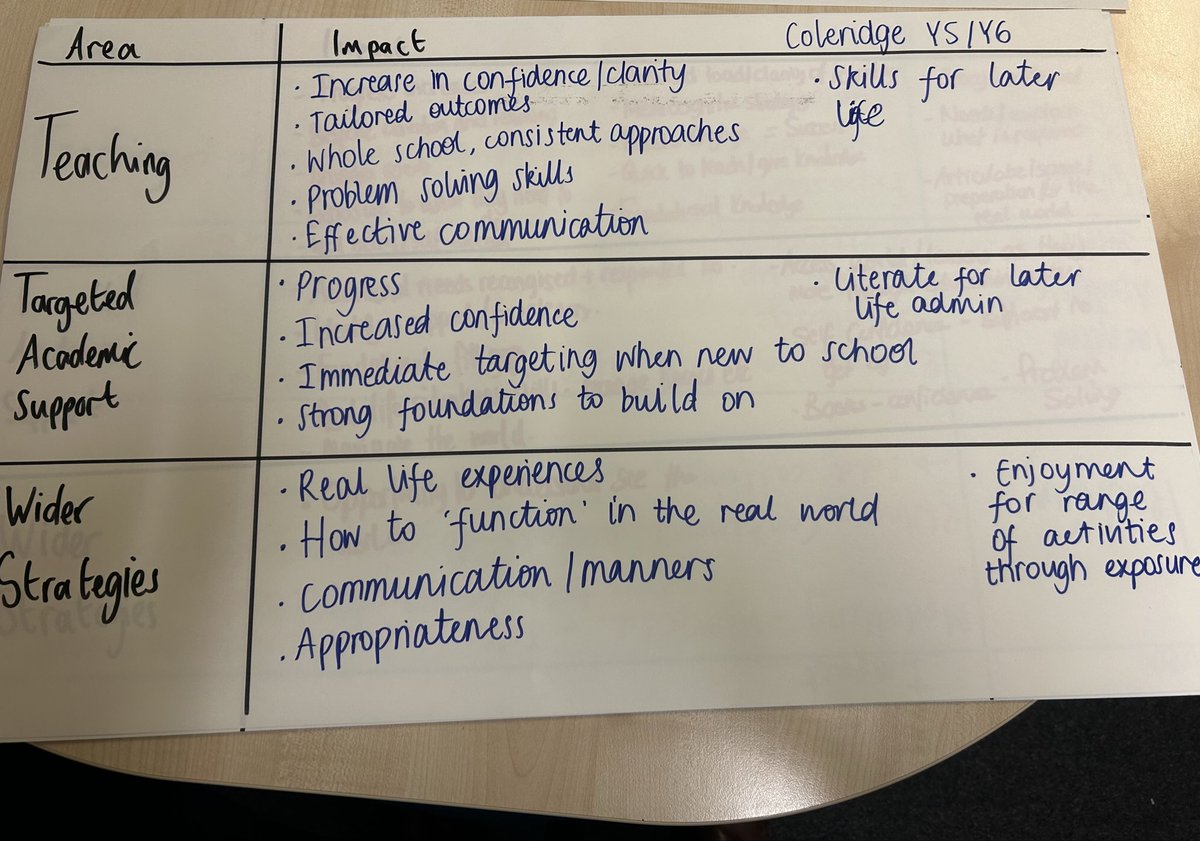 Area Impact Coleridge Y5/Y6
Teaching
· Increase in confidence/clarity
· Tailored outcomes
· Whole school, consistent approaches
· Problem solving skills
· Effective communication
· Skills for later
life
Targeted
Academic
Support
· Progress
· Increased confidence
· Immediate targeting when new to school
· Strong foundations to build on
· Literate for later
life admin
Wider
Strategies
· Real life experiences
· How to 'function' in the real world
· Communication/manners
· Appropriateness
· Enjoyment
for range
of activities
through exposure